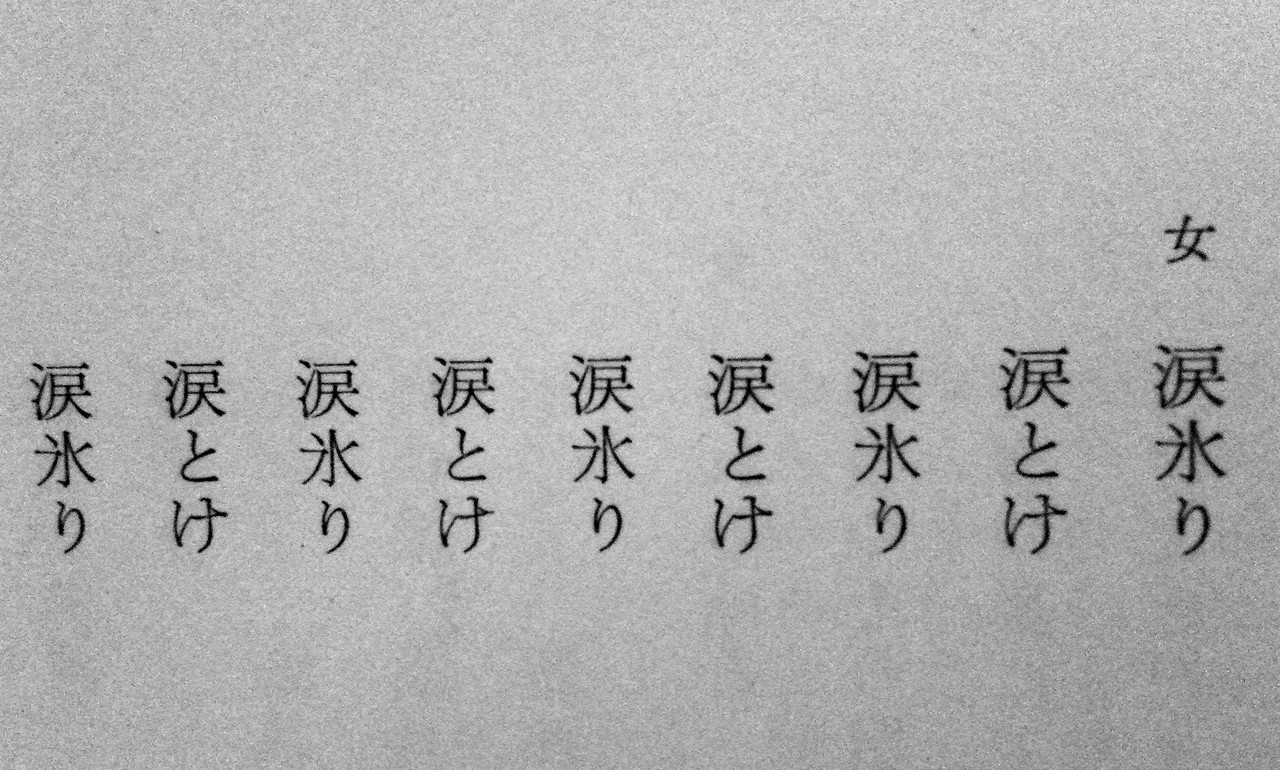 女
涙氷り
涙とけ
涙氷り
涙とけ
涙氷り
涙とけ
涙氷り
涙とけ
涙氷り